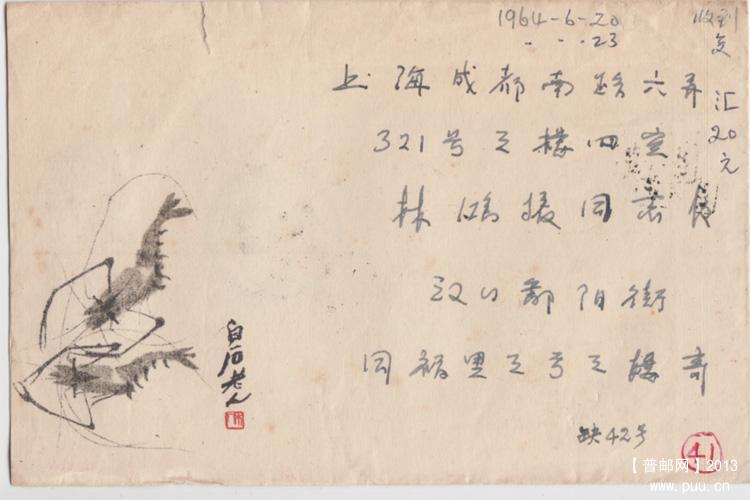 1964-6-20
. - . . 23
收到
复
汇
20
元
上海成都南路六弄
321号三楼四室
林鸿振同志收
汉口鄱阳街
同福里三号三楼寄
白石老人
缺42号
41
【普邮网】2013
www.puu.cn